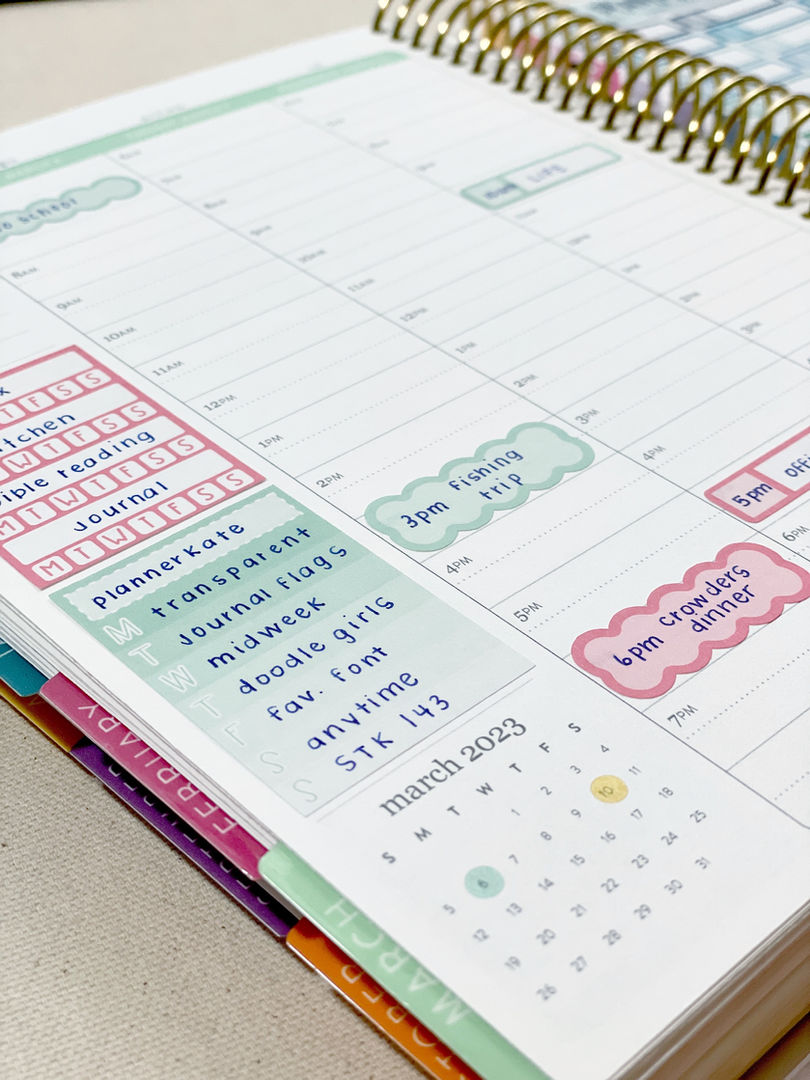 school
8AM
9AM
10AM
11AM
12PM
1PM
2PM
11AM
12PM
1PM
2PM
3PM
4PM
LIFE
3pm fishing
trip
4PM
5PM
5pm
6PM
6pm crowders
dinner
7PM
T F S S
W T F S S
reading
M T W T F S S
Journal
M T W T F S S
plannerkate
M transparent
T Journal flags
W midweek
T doodle girls
F fav. font
S anytime
S STK 143
march 2023
S M T W T F S
1 2 3 4
5 6 7 8 9 10 11
12 13 14 15 16 17 18
19 20 21 22 23 24 25
26 27 28 29 30 31
FEBRUARY
MARCH